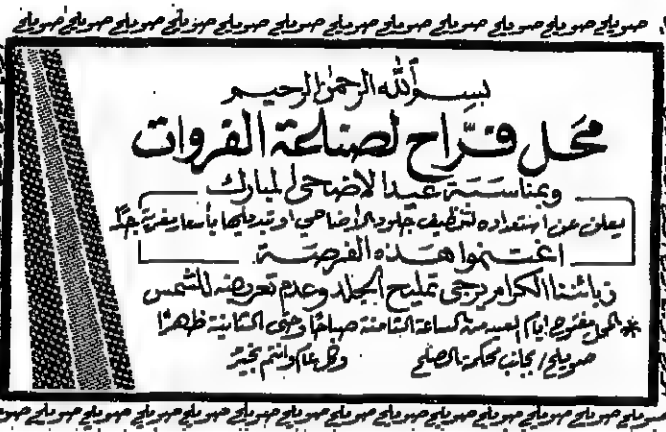 صويلح صويلح صويلح صويلح صويلح صويلح صويلح صويلح صويلح صويلح صويلح صويلح
بسم الله الرحمن الرحيم
محل قرّاح لصناعة الفروات
وبمناسبة عيد الاضحى المبارك
يعلن عن استعداده لتنظيف جلود الأضاحي او تبديلها بأسعار مغرية جداً
اغتنموا هذه الفرصة
زبائننا الكرام يرجى تمليح الجلد وعدم تعريضه للشمس
* المحل يفتح ايام العيد من الساعة الثامنة صباحاً وحتى الثانية ظهراً
صويلح / بجانب محكمة الصلح وكل عام وانتم بخير
صويلح صويلح صويلح صويلح صويلح صويلح صويلح صويلح صويلح صويلح صويلح صويلح